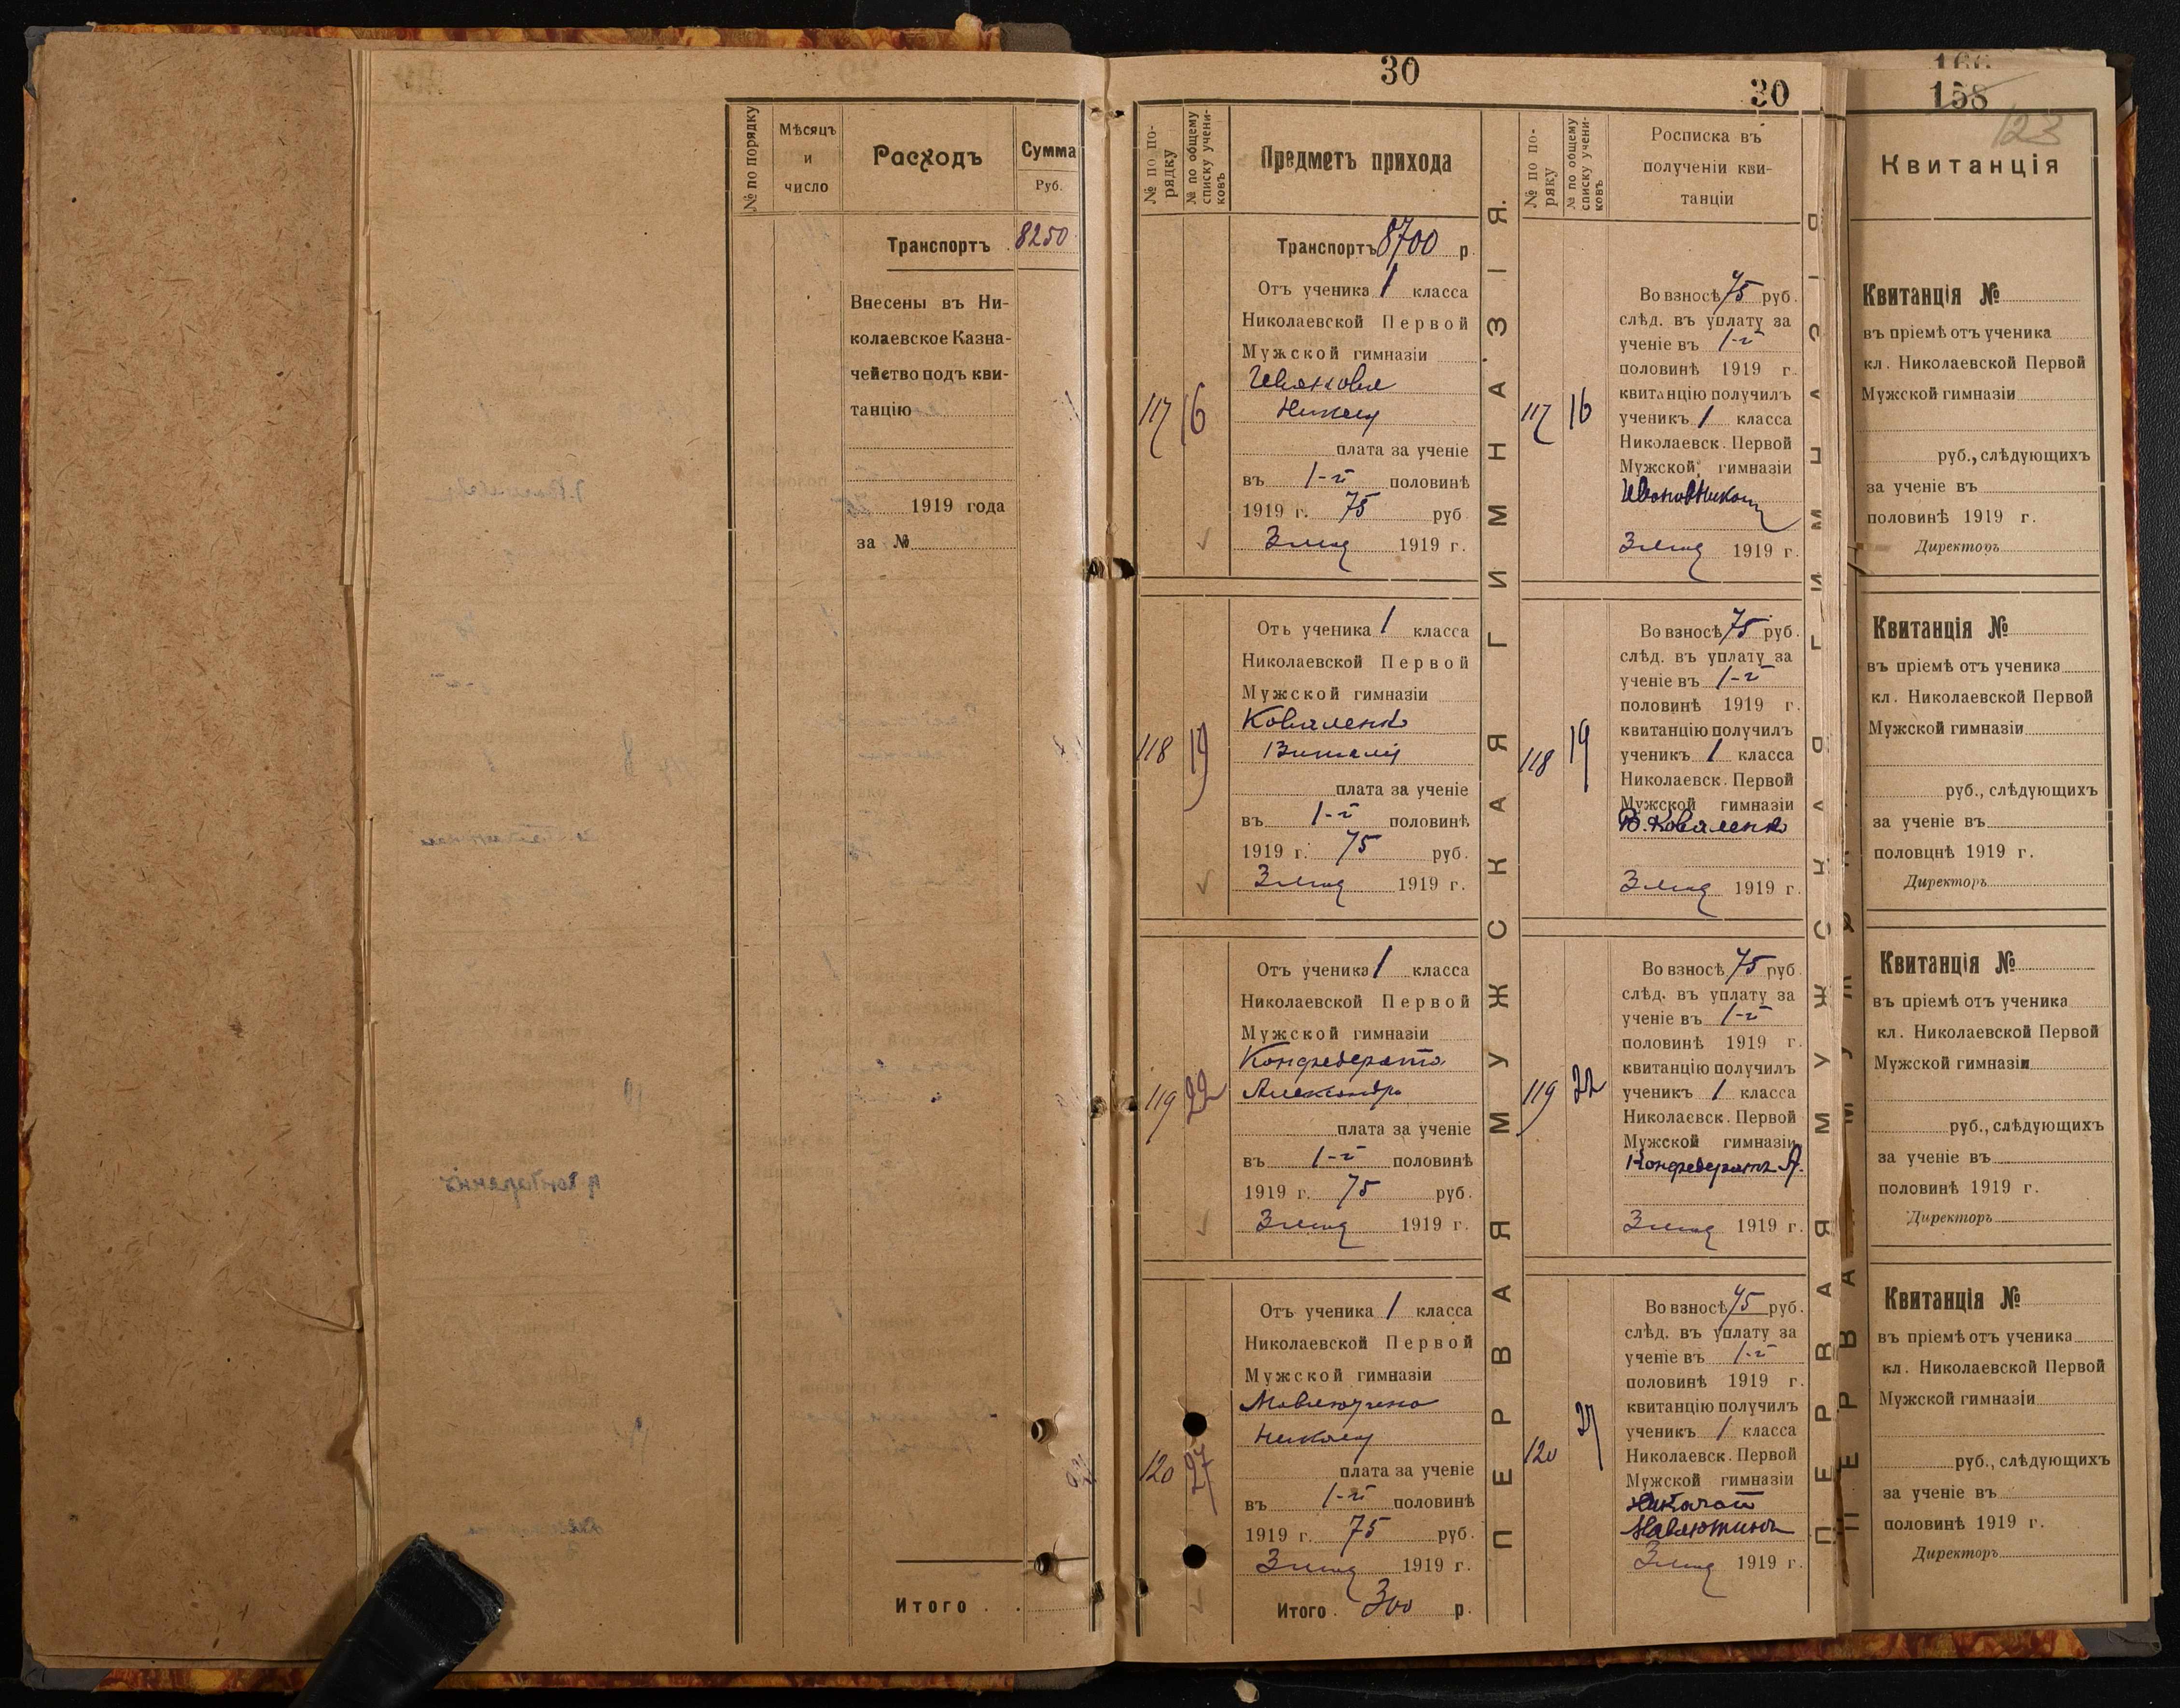 № по порядку
Мѣсяцъ
и
число
Расходъ
Сумма
Руб.
Транспортъ 8250
Внесены въ Ни-
колаевское Казна-
чейство подъ кви-
танцію
1919 года
за №
Итого . .
30
№ по по-
рядку
№ по общему
списку учени-
ковъ
Предметъ прихода
Транспортъ 8700 р
117
16
Отъ ученика 1 класса
Николаевской Первой
Мужской гимназіи
плата за ученіе
въ 1-й половинѣ
1919 г. 75 руб
3 мая 1919 г.
118
19
Отъ ученика 1 класса
Николаевской Первой
Мужской гимназіи
Коваленко
Виталій
плата за ученіе
въ 1-й половинѣ
1919 г. 75 руб.
3 мая 1919 г.
119
22
Отъ ученика 1 класса
Николаевской Первой
Мужской гимназіи
Конфедерата
Александръ
плата за ученіе
въ 1-й половинѣ
1919 г. 75 руб.
3 мая 1919 г.
120
27
Отъ ученика 1 класса
Николаевской Первой
Мужской гимназіи
Николай
плата за ученіе
въ 1-й половинѣ
1919 г. 75 руб.
3 мая 1919 г.
Итого . 300 р.
ПЕРВАЯ МУЖСКАЯ ГИМНАЗІЯ.
30
№ по по-
ряку
№ по общему
списку учени-
ковъ
Росписка въ
полученіи кви-
танціи
117
16
Во взносѣ 75 руб.
слѣд. въ уплату за
ученіе въ 1-й
половинѣ 1919 г.
квитанцію получилъ
ученикъ 1 класса
Николаевск. Первой
Мужской гимназіи
3 мая 1919 г.
118
19
Во взносѣ 75 руб.
слѣд. въ уплату за
ученіе въ 1-й
половинѣ 1919 г.
квитанцію получилъ
ученикъ 1 класса
Николаевск. Первой
Мужской гимназіи
В. Коваленко
3 мая 1919 г.
119
22
Во взносѣ 75 руб
слѣд. въ уплату за
ученіе въ 1-й
половинѣ 1919 г.
квитанцію получилъ
ученикъ 1 класса
Николаевск. Первой
Мужской гимназіи
Конфедератъ А.
3 мая 1919 г.
120
27
Во взносѣ 75 руб.
слѣд. въ уплату за
ученіе въ 1-й
половинѣ 1919 г.
квитанцію получилъ
ученикъ 1 класса
Николаевск. Первой
Мужской гимназіи
3 мая 1919 г.
166
158
123
Квитанція
Квитанція №
въ пріемѣ отъ ученика
кл. Николаевской Первой
Мужской гимназіи
руб., слѣдующихъ
за ученіе въ
половинѣ 1919 г.
Директоръ
Квитанція №
въ пріемѣ отъ ученика
кл. Николаевской Первой
Мужской гимназіи
руб., слѣдующихъ
за ученіе въ
половцнѣ 1919 г.
Директоръ
Квитанція №
въ пріемѣ отъ ученика
кл. Николаевской Первой
Мужской гимназіи
руб., слѣдующихъ
за ученіе въ
половинѣ 1919 г.
Директоръ
Квитанція №
въ пріемѣ отъ ученика
кл. Николаевской Первой
Мужской гимназіи
руб., слѣдующихъ
за ученіе въ
половинѣ 1919 г.
Директоръ